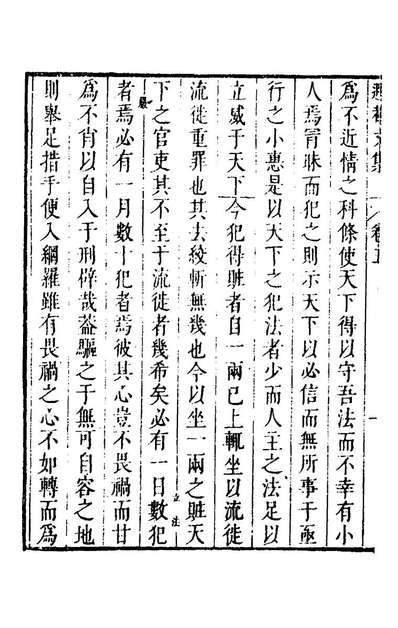 文集 卷五 一
爲不近情之科條使天下得以守吾法而不幸有小
人焉冐昧而犯之則示天下以必信而無所事于亟
行之小惠是以天下之犯法者少而人主之法足以
立威于天下今犯得贓者自一兩已上輒坐以流徙
流徙重罪也其去絞斬無幾也今以坐一兩之贓天
下之官吏其不至于流徙者幾希矣必有一日數犯
立法
嚴
者焉必有一月數十犯者焉彼其心豈不畏禍而甘
爲不肖以自入于刑辟哉葢驅之于無可自容之地
則舉足措手便入綱羅雖有畏禍之心不如轉而爲